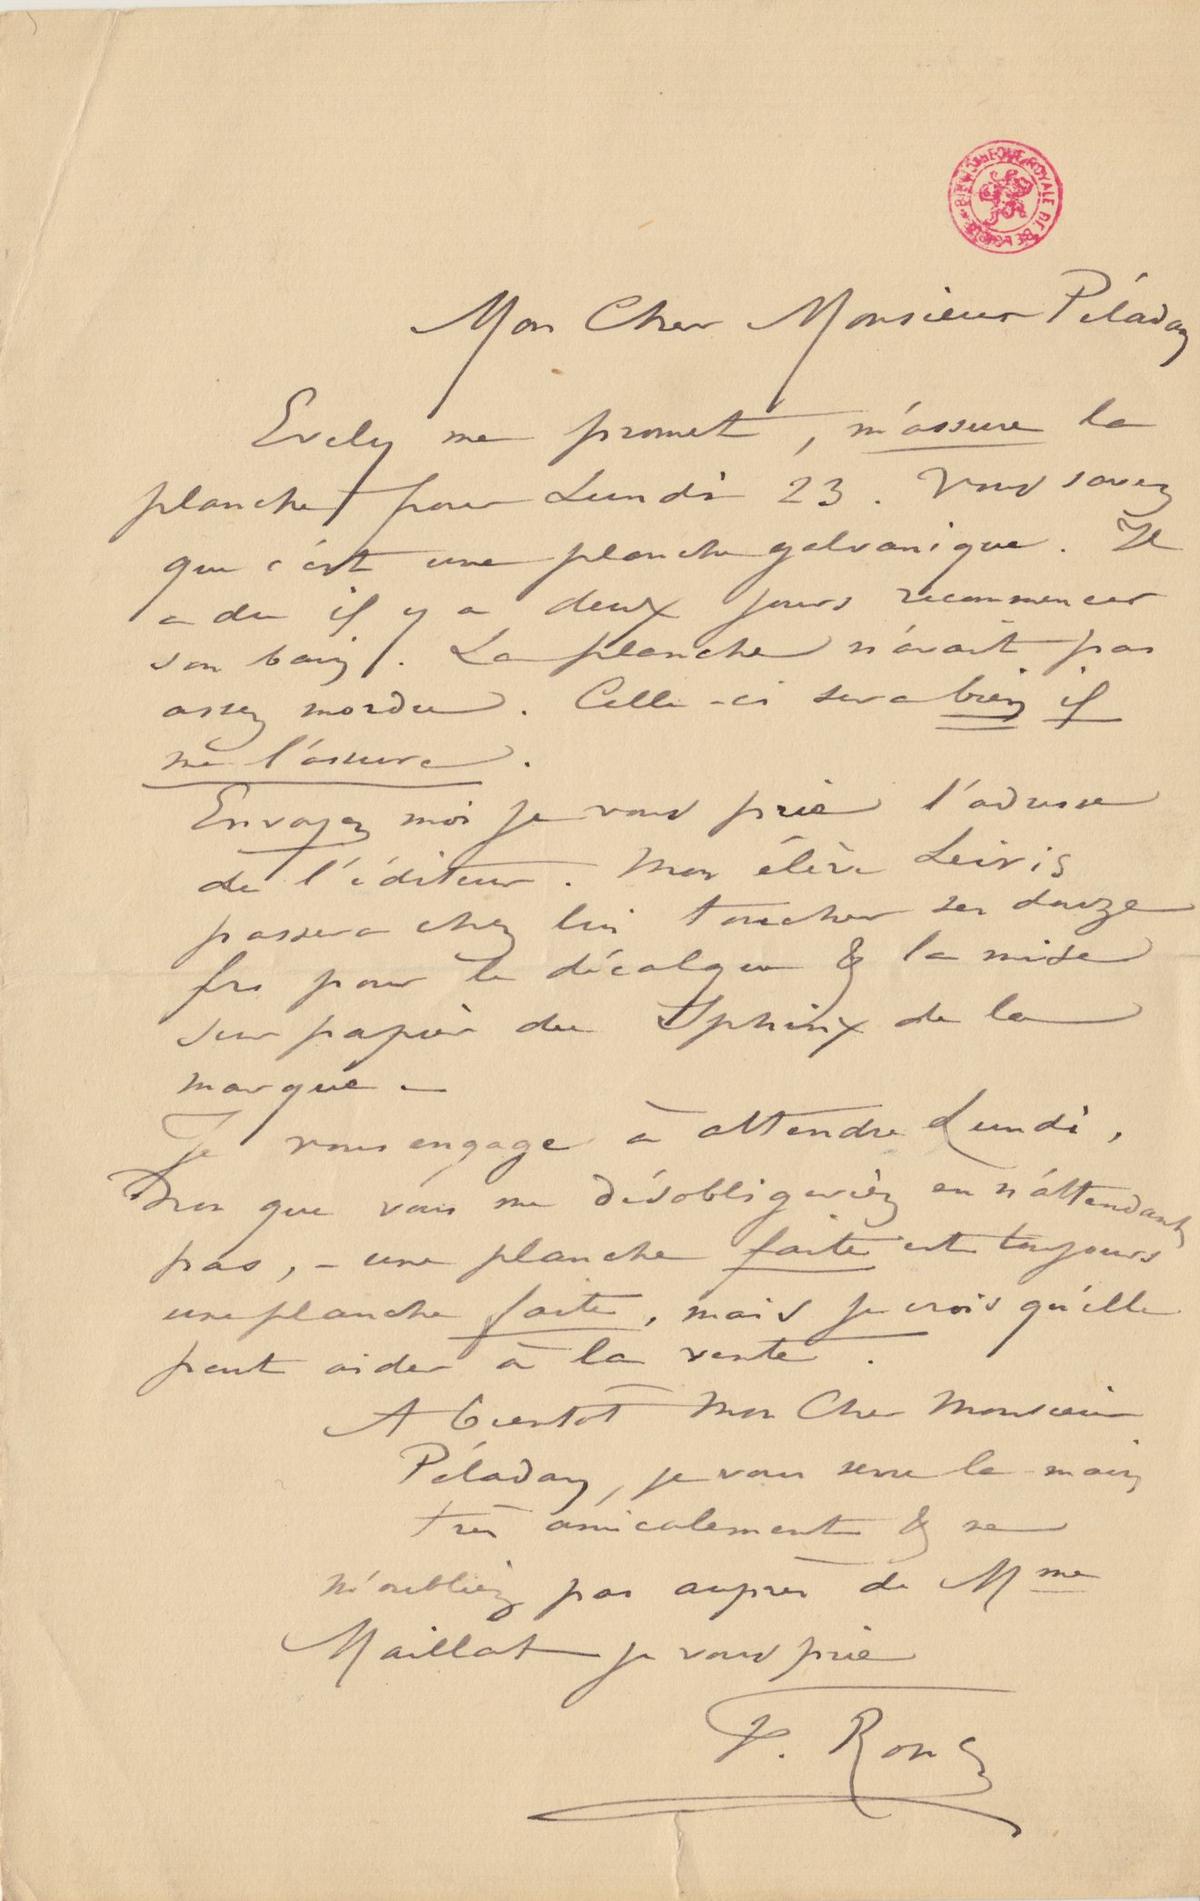 BIBLIOTHEQUE ROYALE DE BELGIQUE
Mon Cher Monsieur Péladan
Evely me promet, m'assure la
planche pour Lundi 23. Vous savez
que c'est une planche galvanique. Il
a du il y a deux jours recommencer
son bain. La planche n'avait pas
assez mordu. Celle-ci sera bien il
me l'assure.
Envoyez moi je vous prie l'adresse
de l'éditeur. Mon élève Leiris
passera chez lui toucher ses douze
frs pour le décalque & la mise
sur papier du Sphinx de la
marque –
Je vous engage à attendre Lundi,
non que vous me désobligeriez en n'attendant
pas, – une planche faite est toujours
une planche faite, mais je crois qu'elle
peut aider à la vente.
A bientot Mon Cher Monsieur
Péladan, je vous serre la main
très amicalement & ne
m'oubliez pas auprès de Mme
Maillat je vous prie
F. Rops